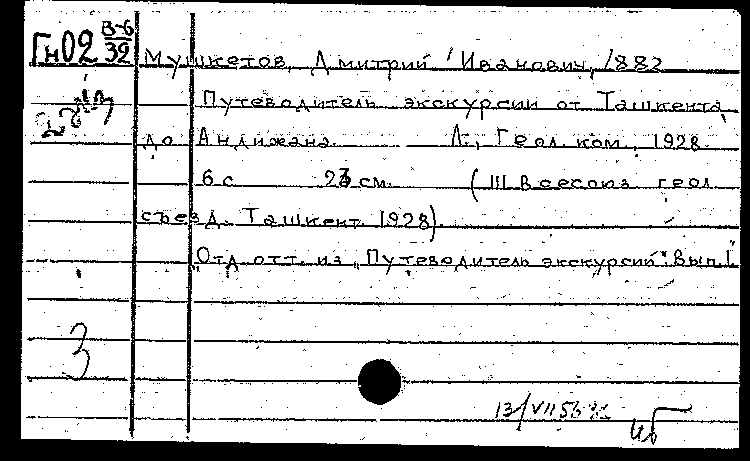 Гн02 В-6/32
Мушкетов, Дмитрий Иванович, 1882
Путеводитель экскурсии от Ташкента
до Андижана. Л., Геол. ком., 1928.
6 с. 23 см. (III Всесоюз. геол.
съезд. Ташкент. 1928).
Отд. отт. из „Путеводитель экскурсий". Вып. I.
3
13/VII 56